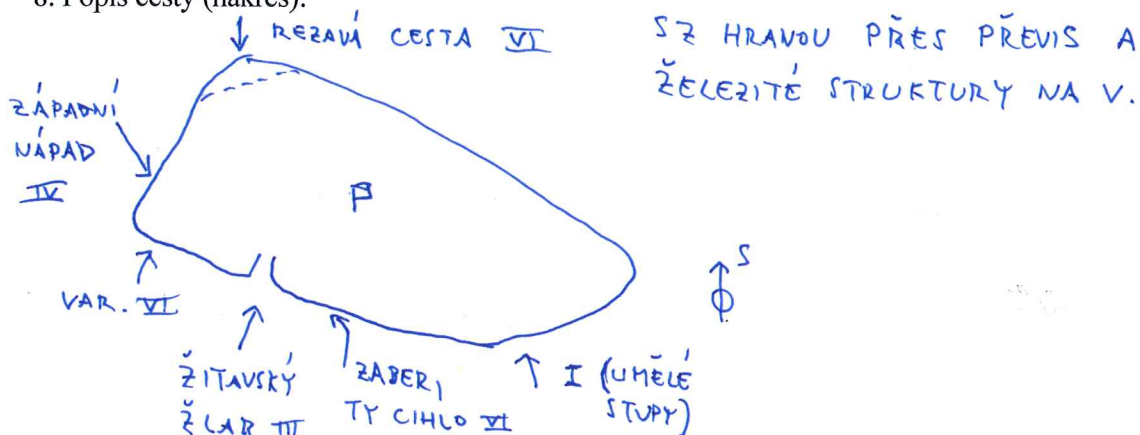 8. Popis cesty (nákres):
REZAVÁ CESTA VI
SZ HRANOU PŘES PŘEVIS A
ŽELEZITÉ STRUKTURY NA V.
ZÁPADNÍ
NÁPAD
IV
P
S
VAR. VI
ŽITAVSKÝ
ŽLAB III
ZABER,
TY CIHLO VI
I (UMĚLÉ
STUPY)